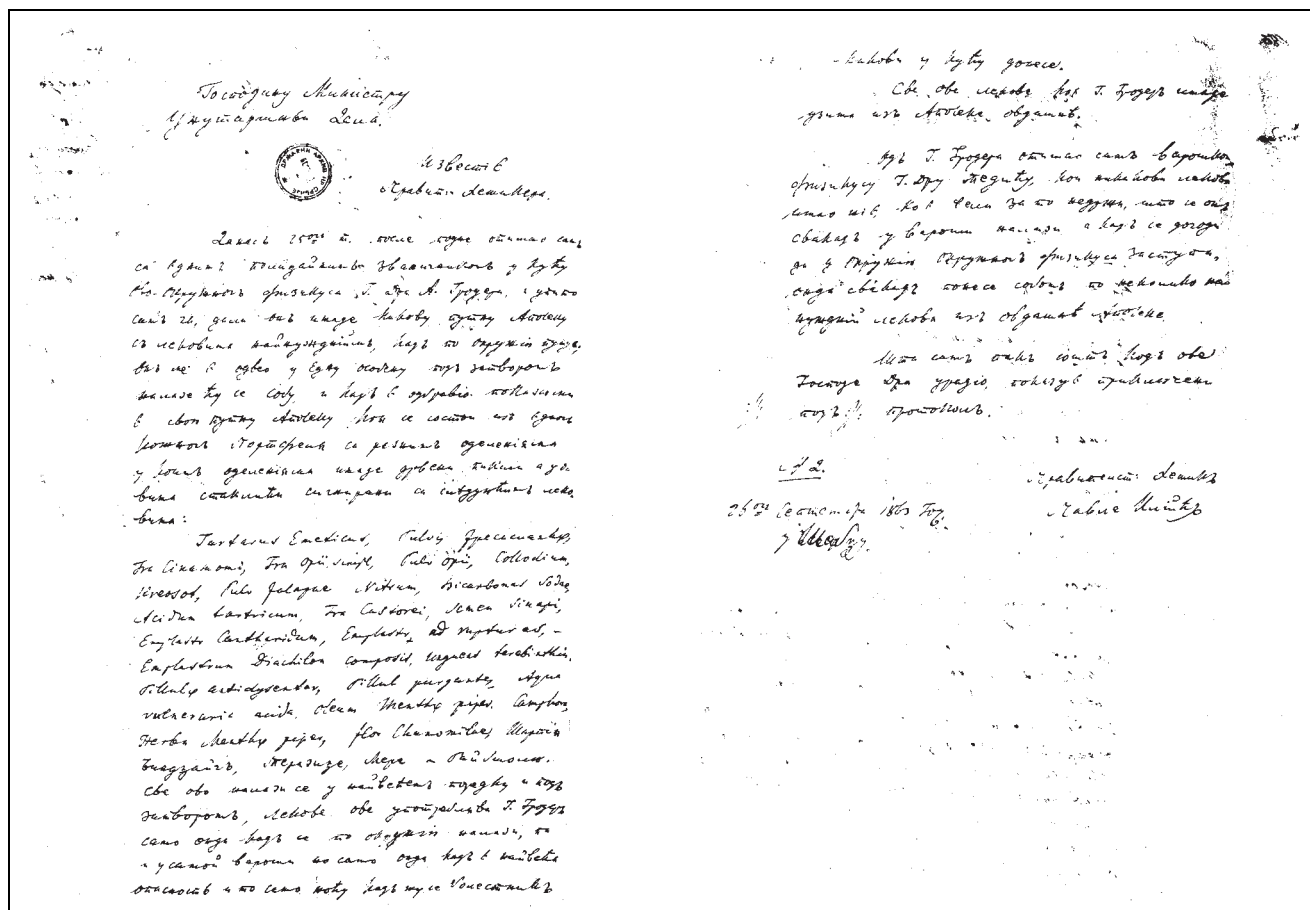 Господину Министру
Унутарньи Дела.
Известіє
Правит. Хемикера.
Данасъ 25ог т. после подне отишао самъ
са єднимъ полицайнимъ званичникомъ у кућу
окружногъ физикуса Г. Дра А. Гродера, и упито
самъ га, дали онъ имаде какову путну Апотеку
съ лековима найнужднiимъ, кадъ по окружію путує,
онъ ме є одвео у єдну особену подъ затворомъ
налазећу се собу, и кадъ є отворiо показао ми
є свою путну Апотеку кои се состои изъ єдногъ
кожногъ Портфеля са разнимъ оделеніяма
у коимъ оделеніяма имаде дрвени
стаклићи сигнирани са следуюћимъ леко-
вима:
Tartarus Emeticus, Pulvis Ipecacuanhæ,
Tra Cinamomi, Tra Opii simpl, Pulv Opii, Collodium,
Kreosot, Pulv Jalapae Nitrum, Bicarbonas Sodae,
Acidum tartricum, Tra Castorei, Semen Sinapi,
Emplastr Cantharidum, Emplastr. ad rupturas, -
Emplastrum Diachilon composit, unguent terebinthin,
Pillulæ antidysenter, Pillul purgantes, Aqua
vulneraria acida, Oleum Menthæ piper. Camphora,
Herba Menthæ piper, flor Chamomilae, Шарпiя
Бандажiй, Теразиє, Мера и
Све ово налази се у найвећемъ поредку и подъ
затворомъ, лекове ове употреблява Г. Гродеръ
само онда кадъ се по окружiю налази, па
и у самой вароши но само онда кадъ є найвећа
опасность и то само ноћу кадъ му се болестникъ
какови у кућу донесе.
Све ове лекове кое Г. Гродеръ имаде
узима изъ Апотеке овдашнѣ.
Одъ Г. Гродера отишао самъ варошкомъ
физикусу Г. Дру Медићу, кои никакови лекова
имао ніє, коє вели за то недржи, што се онъ
свакадъ у вароши налази а кадъ се догоди
да у окружiю окружногъ физикуса заступа,
онда свакадъ понесе собомъ по неколико най
нужднiй лекова изъ овдашнѣ Апотеке
Шта самъ опетъ кодъ ове
Господе Дра урадiо, показує приключени
подъ ·/. протоколъ.
№ 2.
Правителст. Хемик
25ог Септемвра 1863 Год.
Павле Илићъ
у Шабцу.